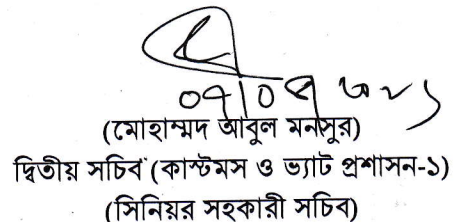 (মোহাম্মদ আবুল মনসুর)
দ্বিতীয় সচিব (কাস্টমস ও ভ্যাট প্রশাসন-১)
(সিনিয়র সহকারী সচিব)